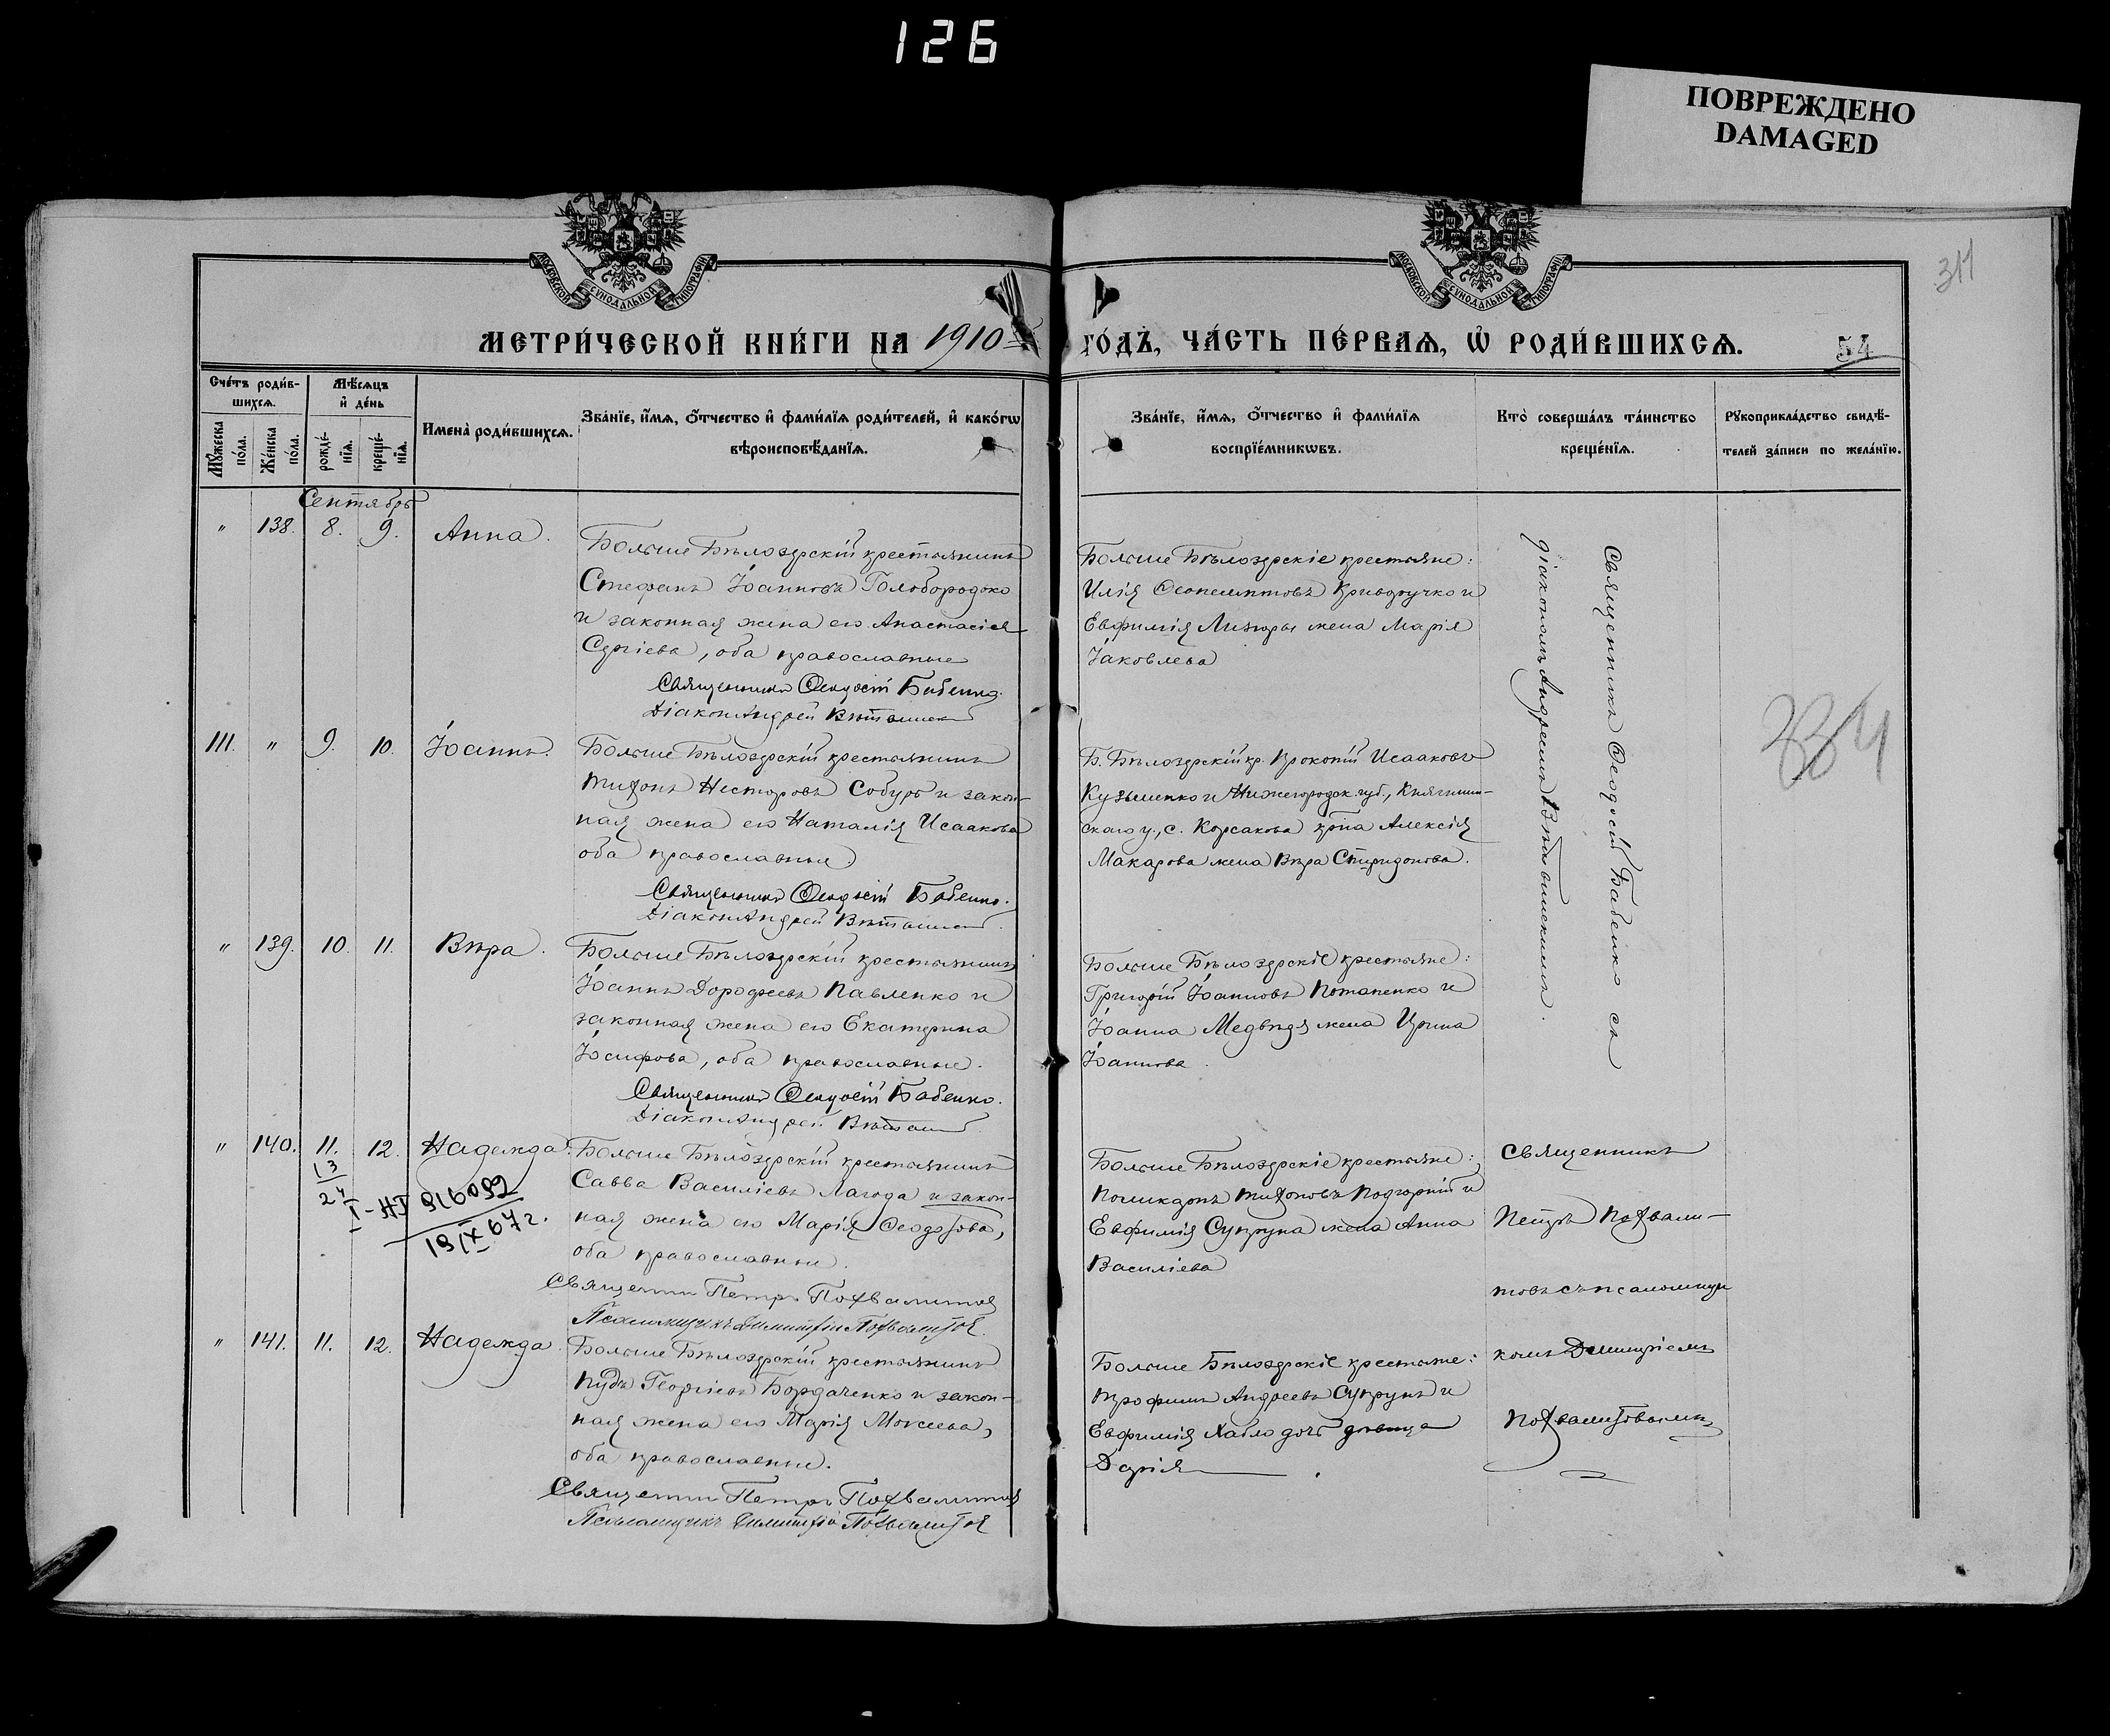 126
ПОВРЕЖДЕНО
DAMAGED
311
МОСКОВСКОЙ СУНОДАЛЬНОЙ ТИПОГРАФІИ
МОСКОВСКОЙ СУНОДАЛЬНОЙ ТИПОГРАФІИ
МЕТРИ́ЧЕСКОЙ КНИ́ГИ НА 1910
ГО́ДЪ, ЧА́СТЬ ПЕ́РВАѦ, Ѡ҆ РОДИ́ВШИХСѦ.
54
Сче́тъ роди́в-
шихсѧ.
Мѣ́сѧцъ
и҆ де́нь
Мꙋ́жеска
по́ла.
Же́нска
по́ла.
рожде́-
нїѧ.
креще́-
нїѧ.
Имена̀ роди́вшихсѧ.
Зва́нїе, и҆́мѧ, ѻ҆́тчество и҆ фами́лїѧ роди́телей, и҆ како́гѡ
вѣроисповѣ́данїѧ.
Зва́нїе, и҆́мѧ, ѻ҆́тчество и҆ фами́лїѧ
воспрїе́мникѡвъ.
Кто̀ соверша́лъ та́инство
креще́нїѧ.
Рꙋкоприкла́дство свидѣ́-
телей за́писи по жела́нїю.
Сентябрь
" 138. 8. 9. Анна.
Больше Бѣлозерскій крестьянинъ
Стефанъ Іоанновъ Голобородько
и законная жена его Анастасія
Сергіева, оба православные
Священникъ Ѳеодосій Бабенко.
Діаконъ Андрей
Больше Бѣлозерскіе крестьяне:
Илія Криворучко и
Евфимія Лизоры жена Марія
Іаковлева
Священникъ Ѳеодосій Бабенко съ
діакономъ Андреемъ
111. " 9. 10. Іоаннъ.
Больше Бѣлозерскій крестьянинъ
Тихонъ Несторовъ Собуръ и закон-
ная жена его Наталія Исаакова
оба православные
Священникъ Ѳеодосій Бабенко.
Діаконъ Андрей
Б. Бѣлозерскій кр. Прокопій Исааковъ
Кузьменко и Нижегородск. губ., Княгинин-
скаго у., с. Корсакова крⷭна Алексія
Макарова жена Вѣра Спиридонова.
334
" 139. 10. 11. Вѣра.
Больше Бѣлозерскій крестьянинъ
Іоаннъ Дороѳеевъ Павленко и
законная жена его Екатерина
Іосифова, оба православные.
Священникъ Ѳеодосій Бабенко.
Діаконъ Андрей
Больше Бѣлозерскіе крестьяне:
Григорій Іоанновъ Потапенко и
Іоанна Медвѣдя жена Ирина
Іоаннова.
" 140. 11. 12. Надежда.
13
24
I-НГ 916092
19/IX 67 г.
Больше Бѣлозерскій крестьянинъ
Савва Василіевъ Лагода и закон-
ная жена его Марія Ѳеодотова,
оба православные.
Священникъ Петръ Похвалитовъ
Псаломщикъ Димитрій Похвалитовъ
Больше Бѣлозерскіе крестьяне:
Тихоновъ Подгорній и
Евфимія Супруна жена Анна
Василіева
Священникъ
Петръ Похвали-
товъ съ псаломщи
комъ Димитріемъ
Похвалитовымъ
" 141. 11. 12. Надежда.
Больше Бѣлозерскій крестьянинъ
Пудъ Георгіевъ Бордаченко и закон-
ная жена его Марія Моисеева,
оба православные.
Священникъ Петръ Похвалитовъ
Псаломщикъ Димитрій Похвалитовъ
Больше Бѣлозерскіе крестьяне:
Трофимъ Андреевъ Супрунъ и
Евфимія Хабло дочь дѣвица
Дарія.